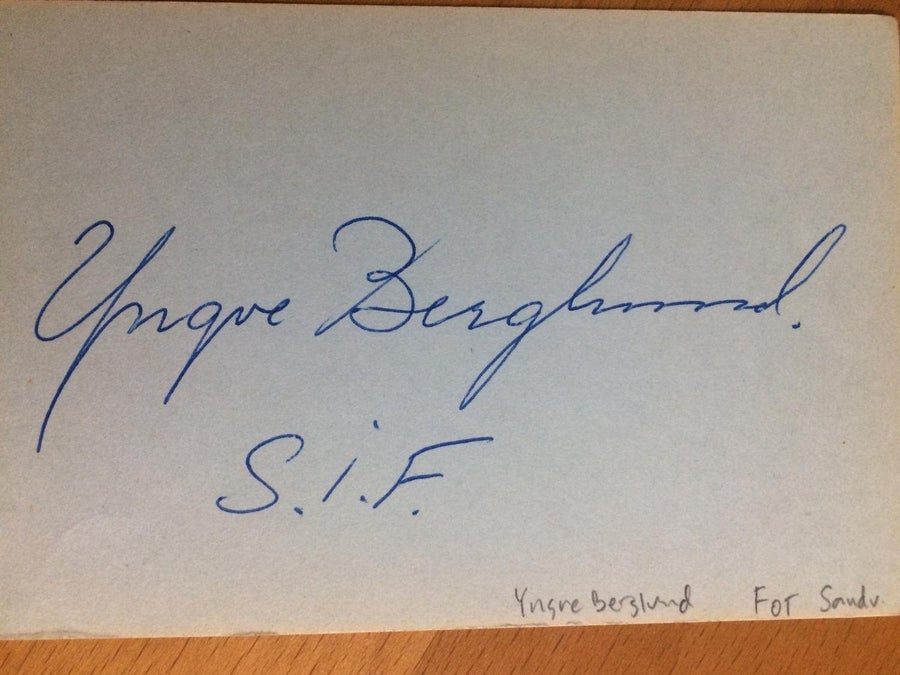 Yngve Berglund.
S.I.F.
Yngve Berglund FOT Sandv.